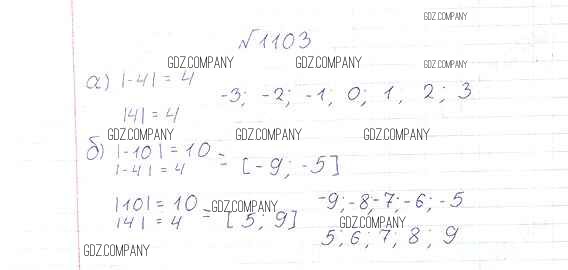 GDZ.COMPANY
№1103
GDZ.COMPANY GDZ.COMPANY GDZ.COMPANY
а) |-4| = 4 -3; -2; -1, 0; 1, 2; 3
|4| = 4
GDZ.COMPANY GDZ.COMPANY GDZ.COMPANY
б) |-10| = 10
|-4| = 4 = [-9; -5]
|10| = 10 -9; -8; -7; -6; -5
GDZ.COMPANY
|4| = 4 = [5; 9] GDZ.COMPANY
5; 6; 7; 8; 9
GDZ.COMPANY